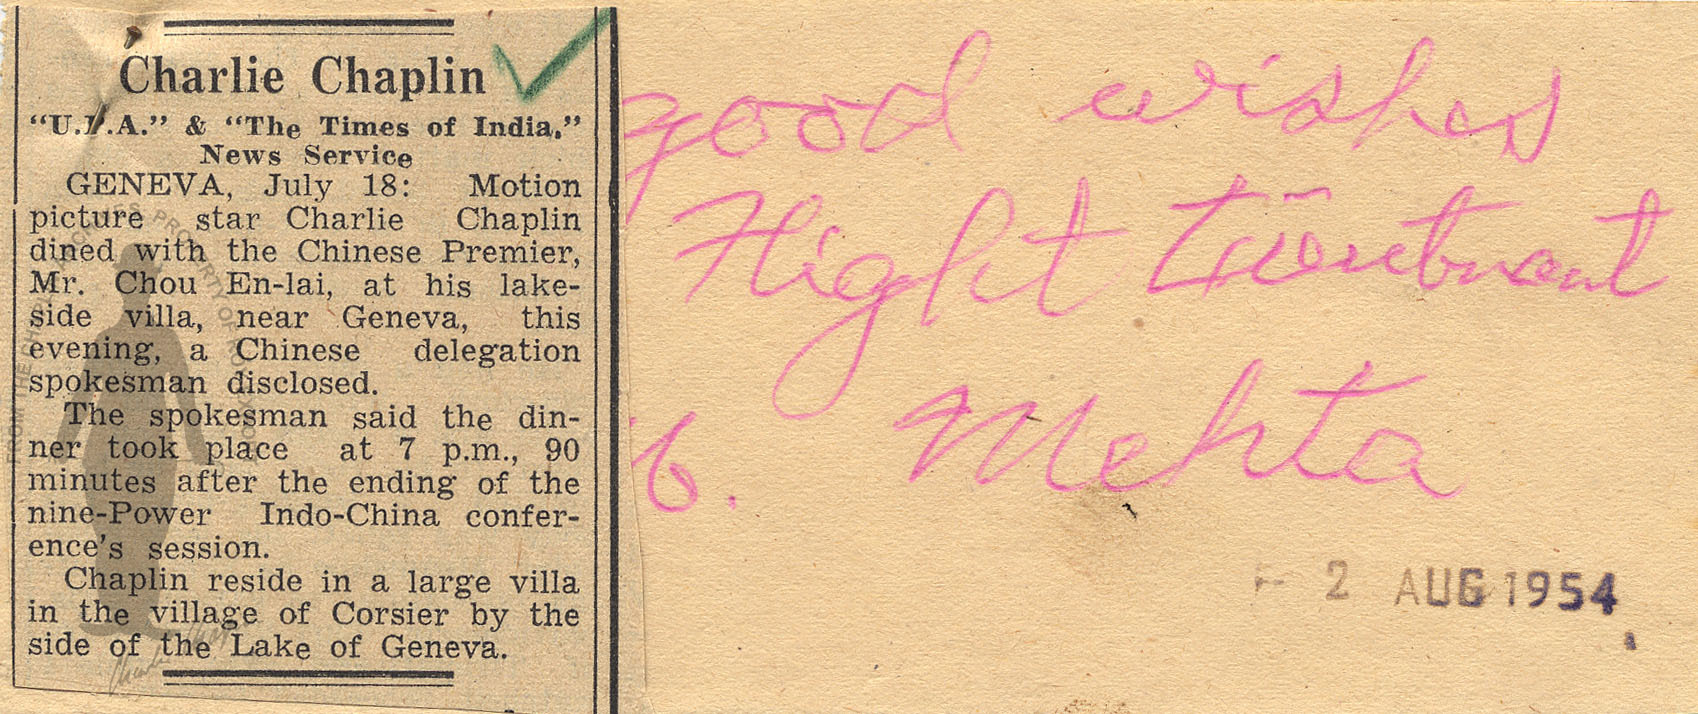 Charlie Chaplin
"U.P.A." & "The Times of India,"
News Service
GENEVA, July 18: Motion
picture star Charlie Chaplin
dined with the Chinese Premier,
Mr. Chou En-lai, at his lake-
side villa, near Geneva, this
evening, a Chinese delegation
spokesman disclosed.
The spokesman said the din-
ner took place at 7 p.m., 90
minutes after the ending of the
nine-Power Indo-China confer-
ence's session.
Chaplin reside in a large villa
in the village of Corsier by the
side of the Lake of Geneva.
good wishes
Flight
Mehta
2 AUG 1954